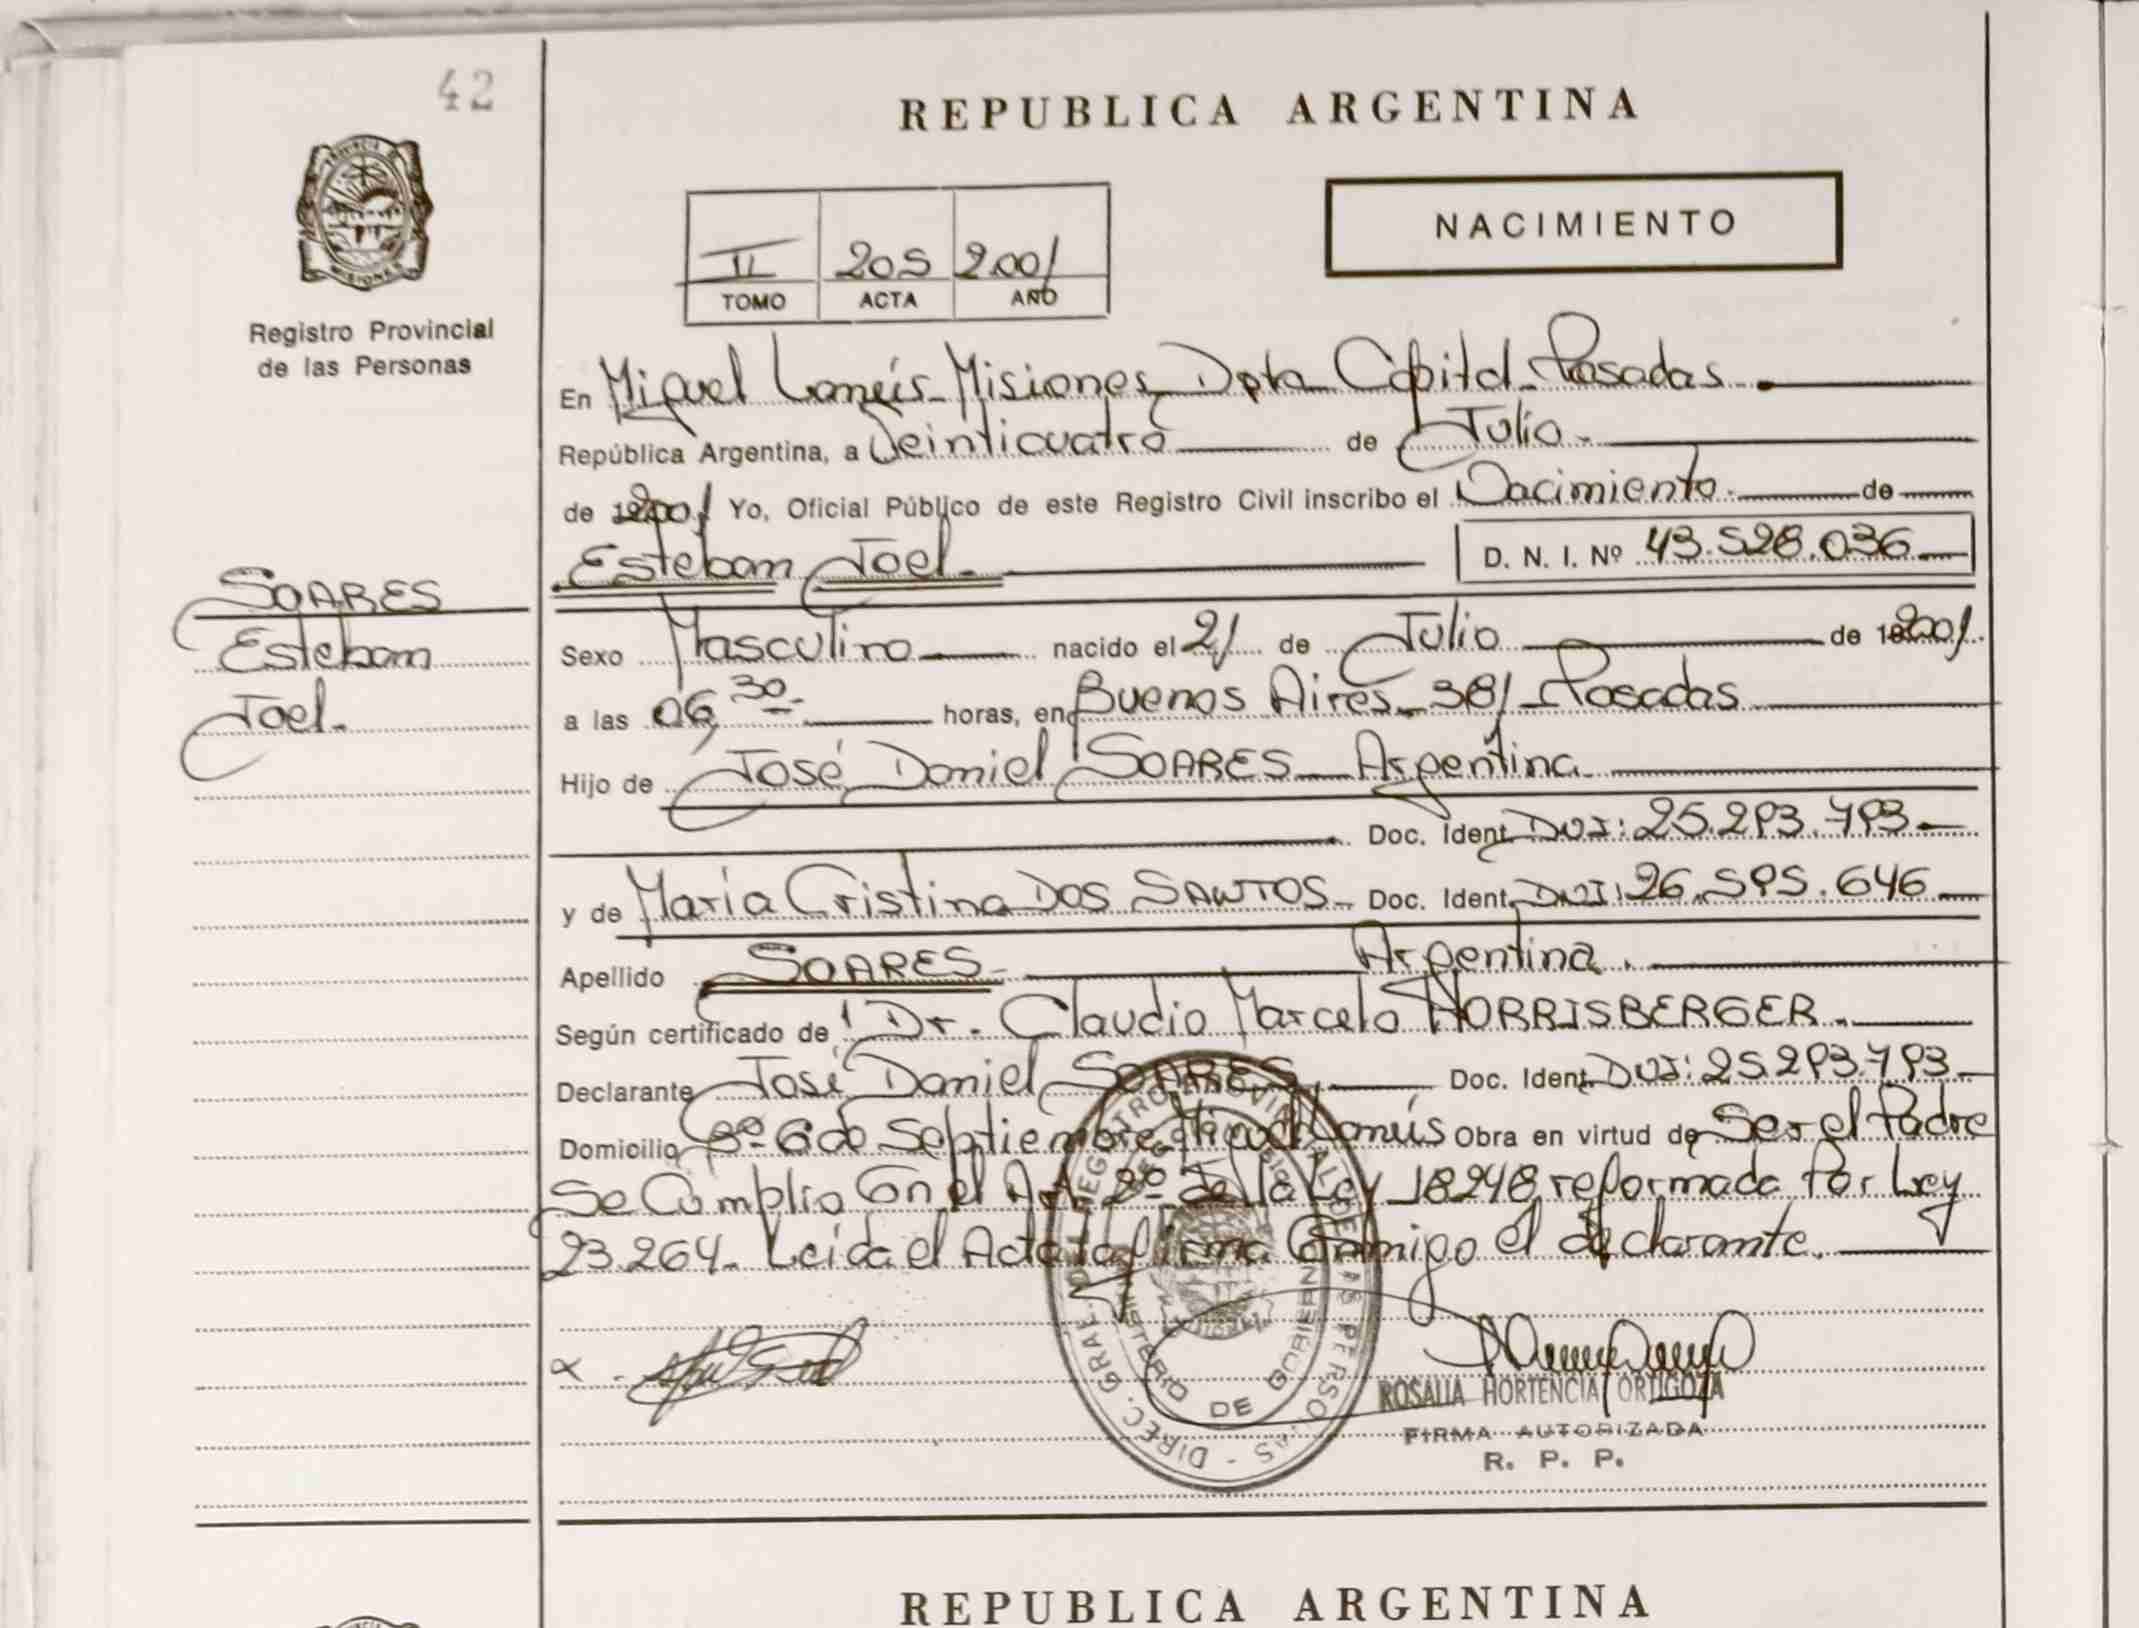 42
REPUBLICA ARGENTINA
PROVINCIA DE
MISIONES
Registro Provincial
de las Personas
NACIMIENTO
II 205 2001
TOMO ACTA AÑO
En Miguel Lanús - Misiones Dpto Capital - Posadas.
República Argentina, a Veinticuatro de Julio.
de 2001 Yo, Oficial Público de este Registro Civil inscribo el Nacimiento. de
Esteban Joel. D. N. I. Nº 43.528.036
SOARES
Esteban
Joel.
Sexo Masculino nacido el 21 de Julio de 2001.
a las 06,30 horas, en Buenos Aires - 381 - Posadas
Hijo de José Daniel SOARES - Argentina
Doc. Ident. DNI: 25.293.793
y de María Cristina DOS SANTOS - Doc. Ident. DNI: 26.595.646
Apellido SOARES - Argentina.
Según certificado de Dr. Claudio Marcelo HORRISBERGER.
Declarante José Daniel SOARES Doc. Ident. DNI: 25.293.793
Domicilio Bº 6 de Septiembre Miguel Lanús Obra en virtud de Ser el Padre
Se Cumplio Con el Art. 2º de la Ley 18248 reformada Por Ley
23.264. Leida el Acta la firma Conmigo el declarante.
DIREC. GRAL. DEL REGISTRO PROVINCIAL DE LAS PERSONAS -
MINISTERIO DE GOBIERNO
ROSALIA HORTENCIA ORTIGOZA
FIRMA AUTORIZADA
R. P. P.
REPUBLICA ARGENTINA